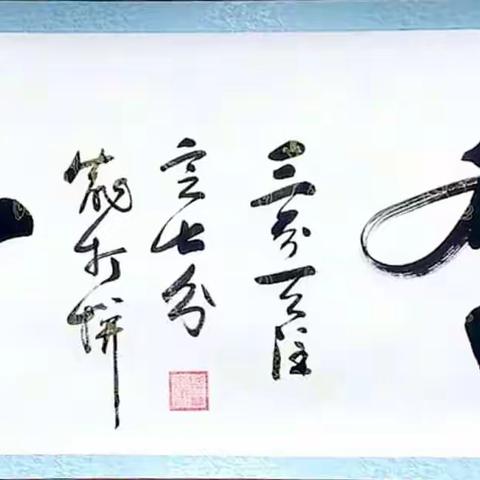 三分天注
定七分
靠打拼